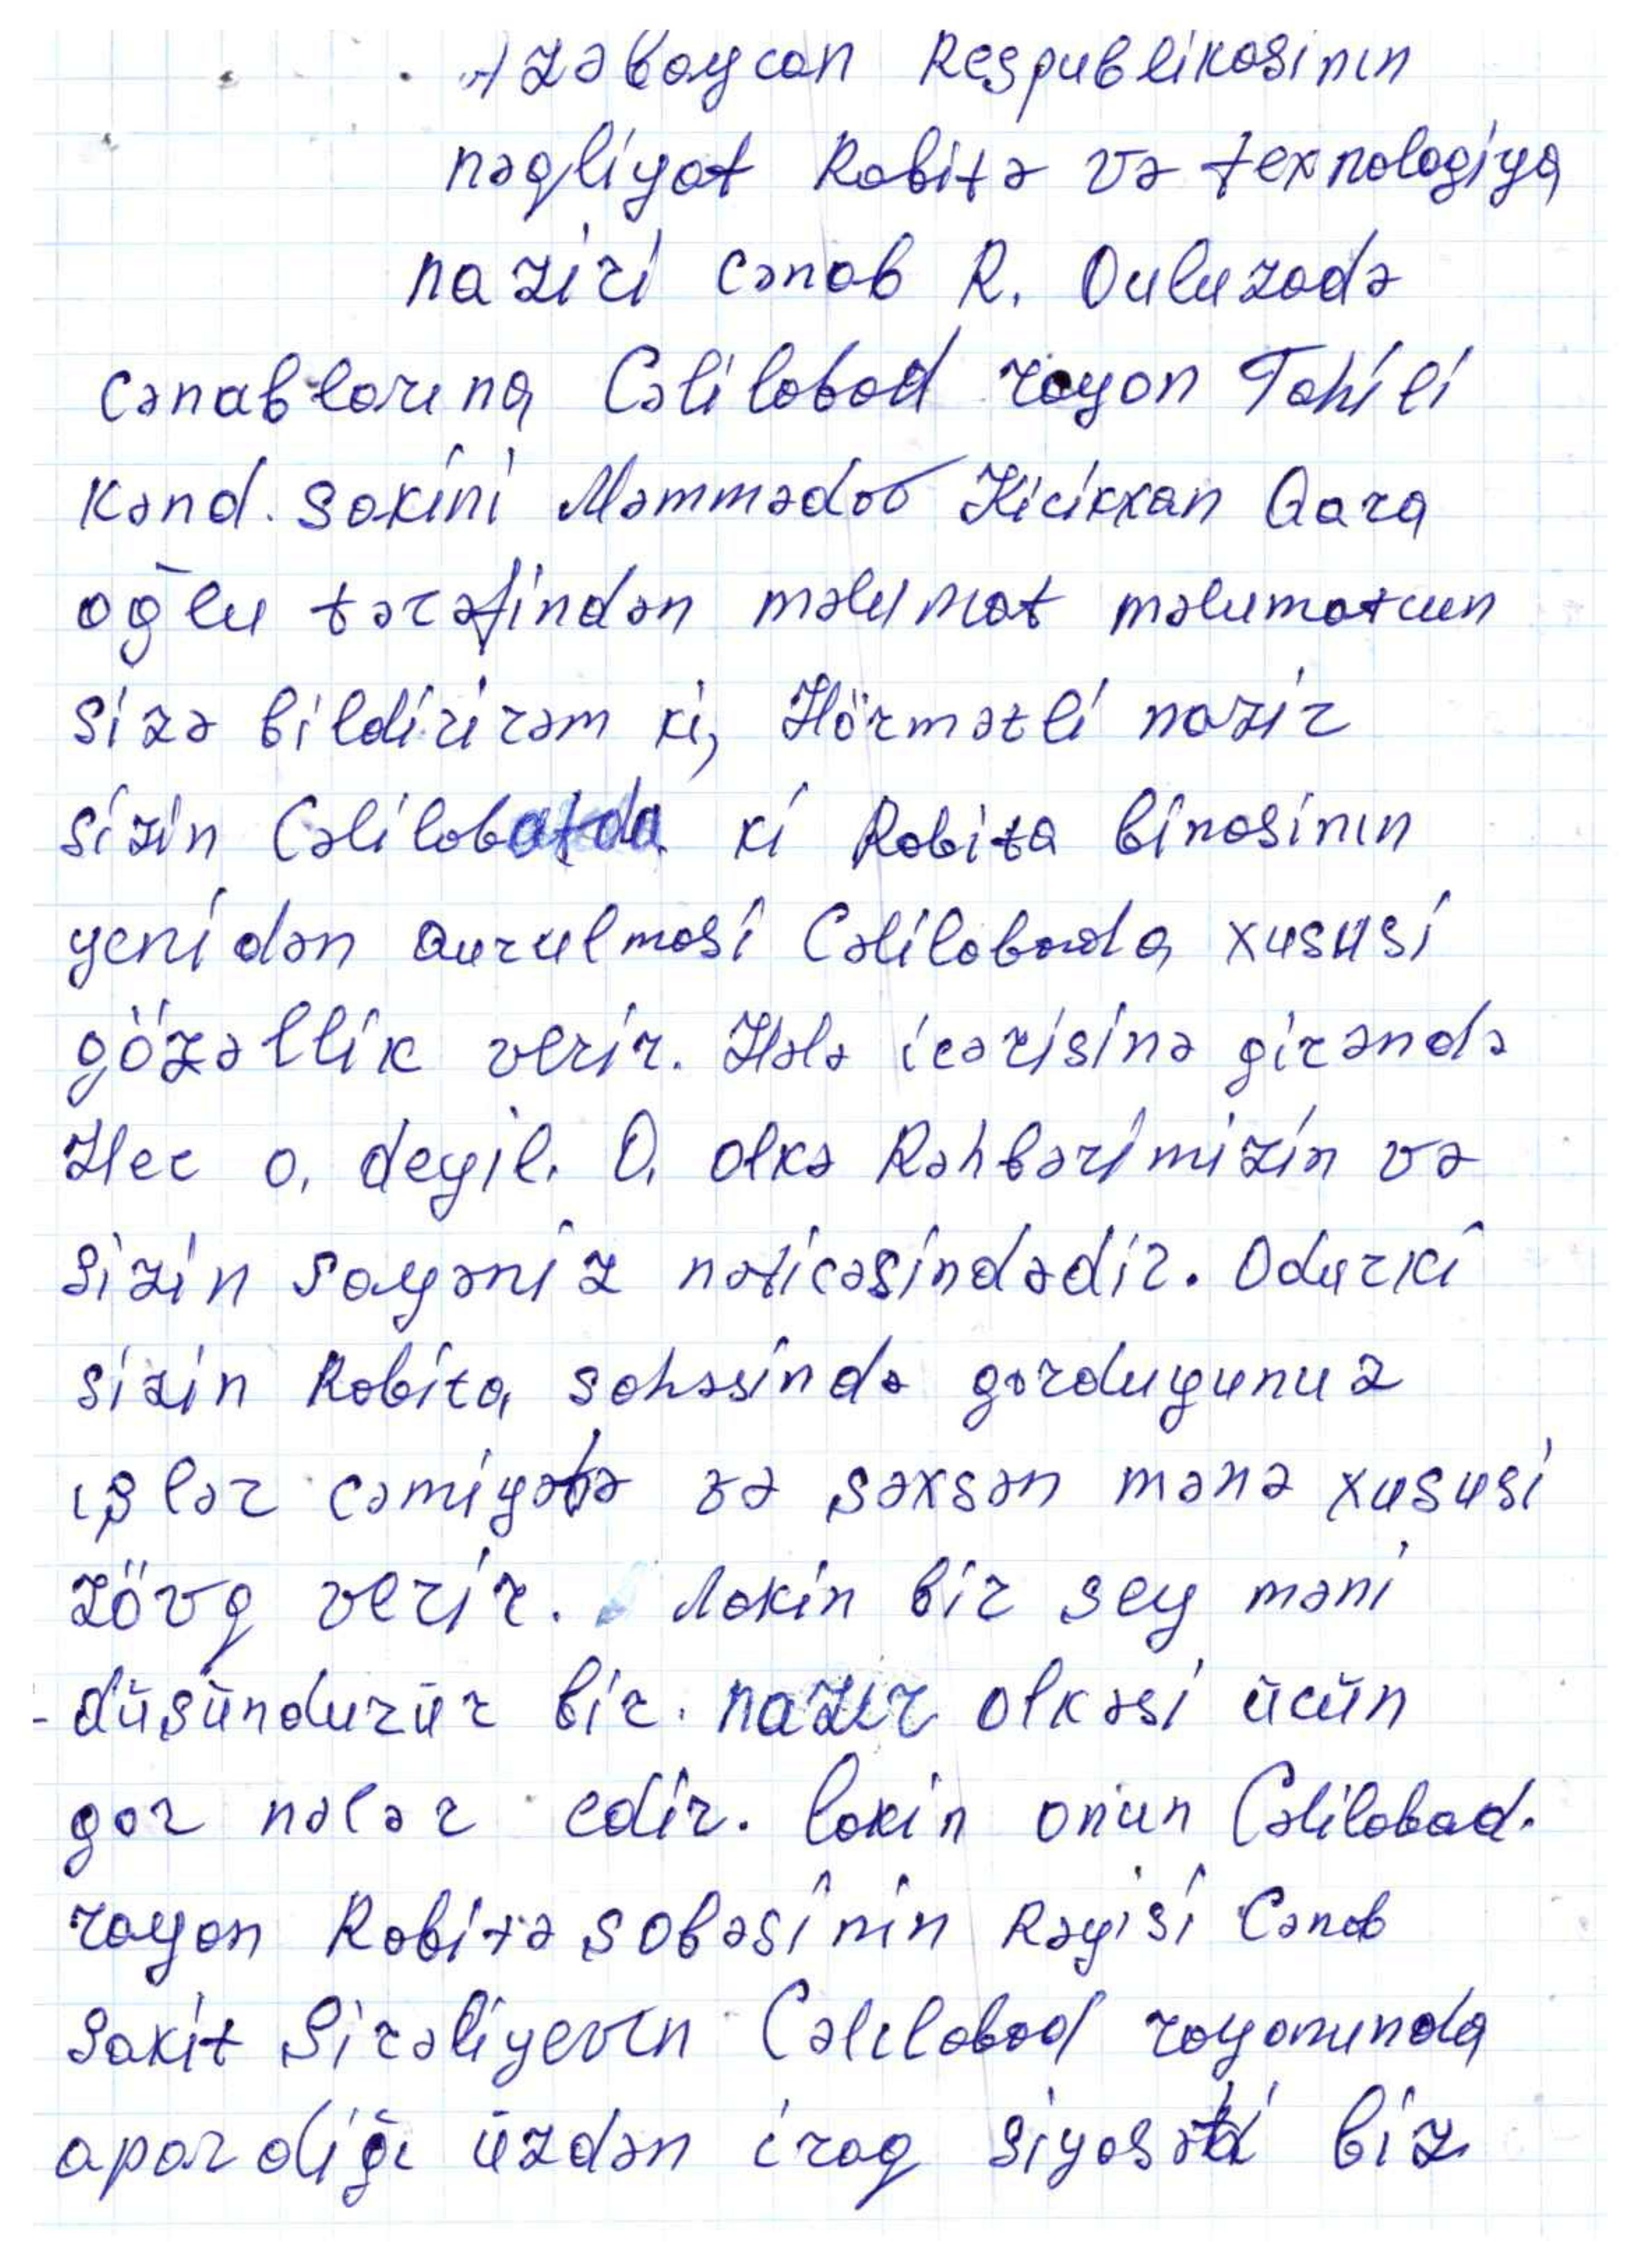 Azəbaycan Respublikasinın
nəqliyat Rabitə və texnologiya
naziri cənab R. Quluzadə
cənablarına Cəlilabad rayon Tahili
kənd. sakini Məmmədov Kicikxan Qara
oğlu tərəfindən məlumat məlumatcun
sizə bildirirəm ki, Hörmətli nazir
sizin Cəlilabatda ki Rabita binasinın
yenidən qurulmasi Cəlilabada xususi
gözəllik verir. Hələ icərisinə girəndə
Hec o, deyil. O, olkə Rəhbərimizin və
sizin sayəniz nəticəsindədir. Odurki
sizin Rabita sahəsində gorduyunuz
işlər cəmiyətə və şəxsən mənə xususi
zövg verir. Lakin bir şey məni
düşündurür bir. nazir olkəsi ücün
gor nələr edir. lakin onun Cəlilabad.
rayon Rabitə şobəsinin Rəyisi Cənab
Sakit Şirəliyevin Cəlilabad rayonunda
apardiği üzdən iraq siyasəti biz